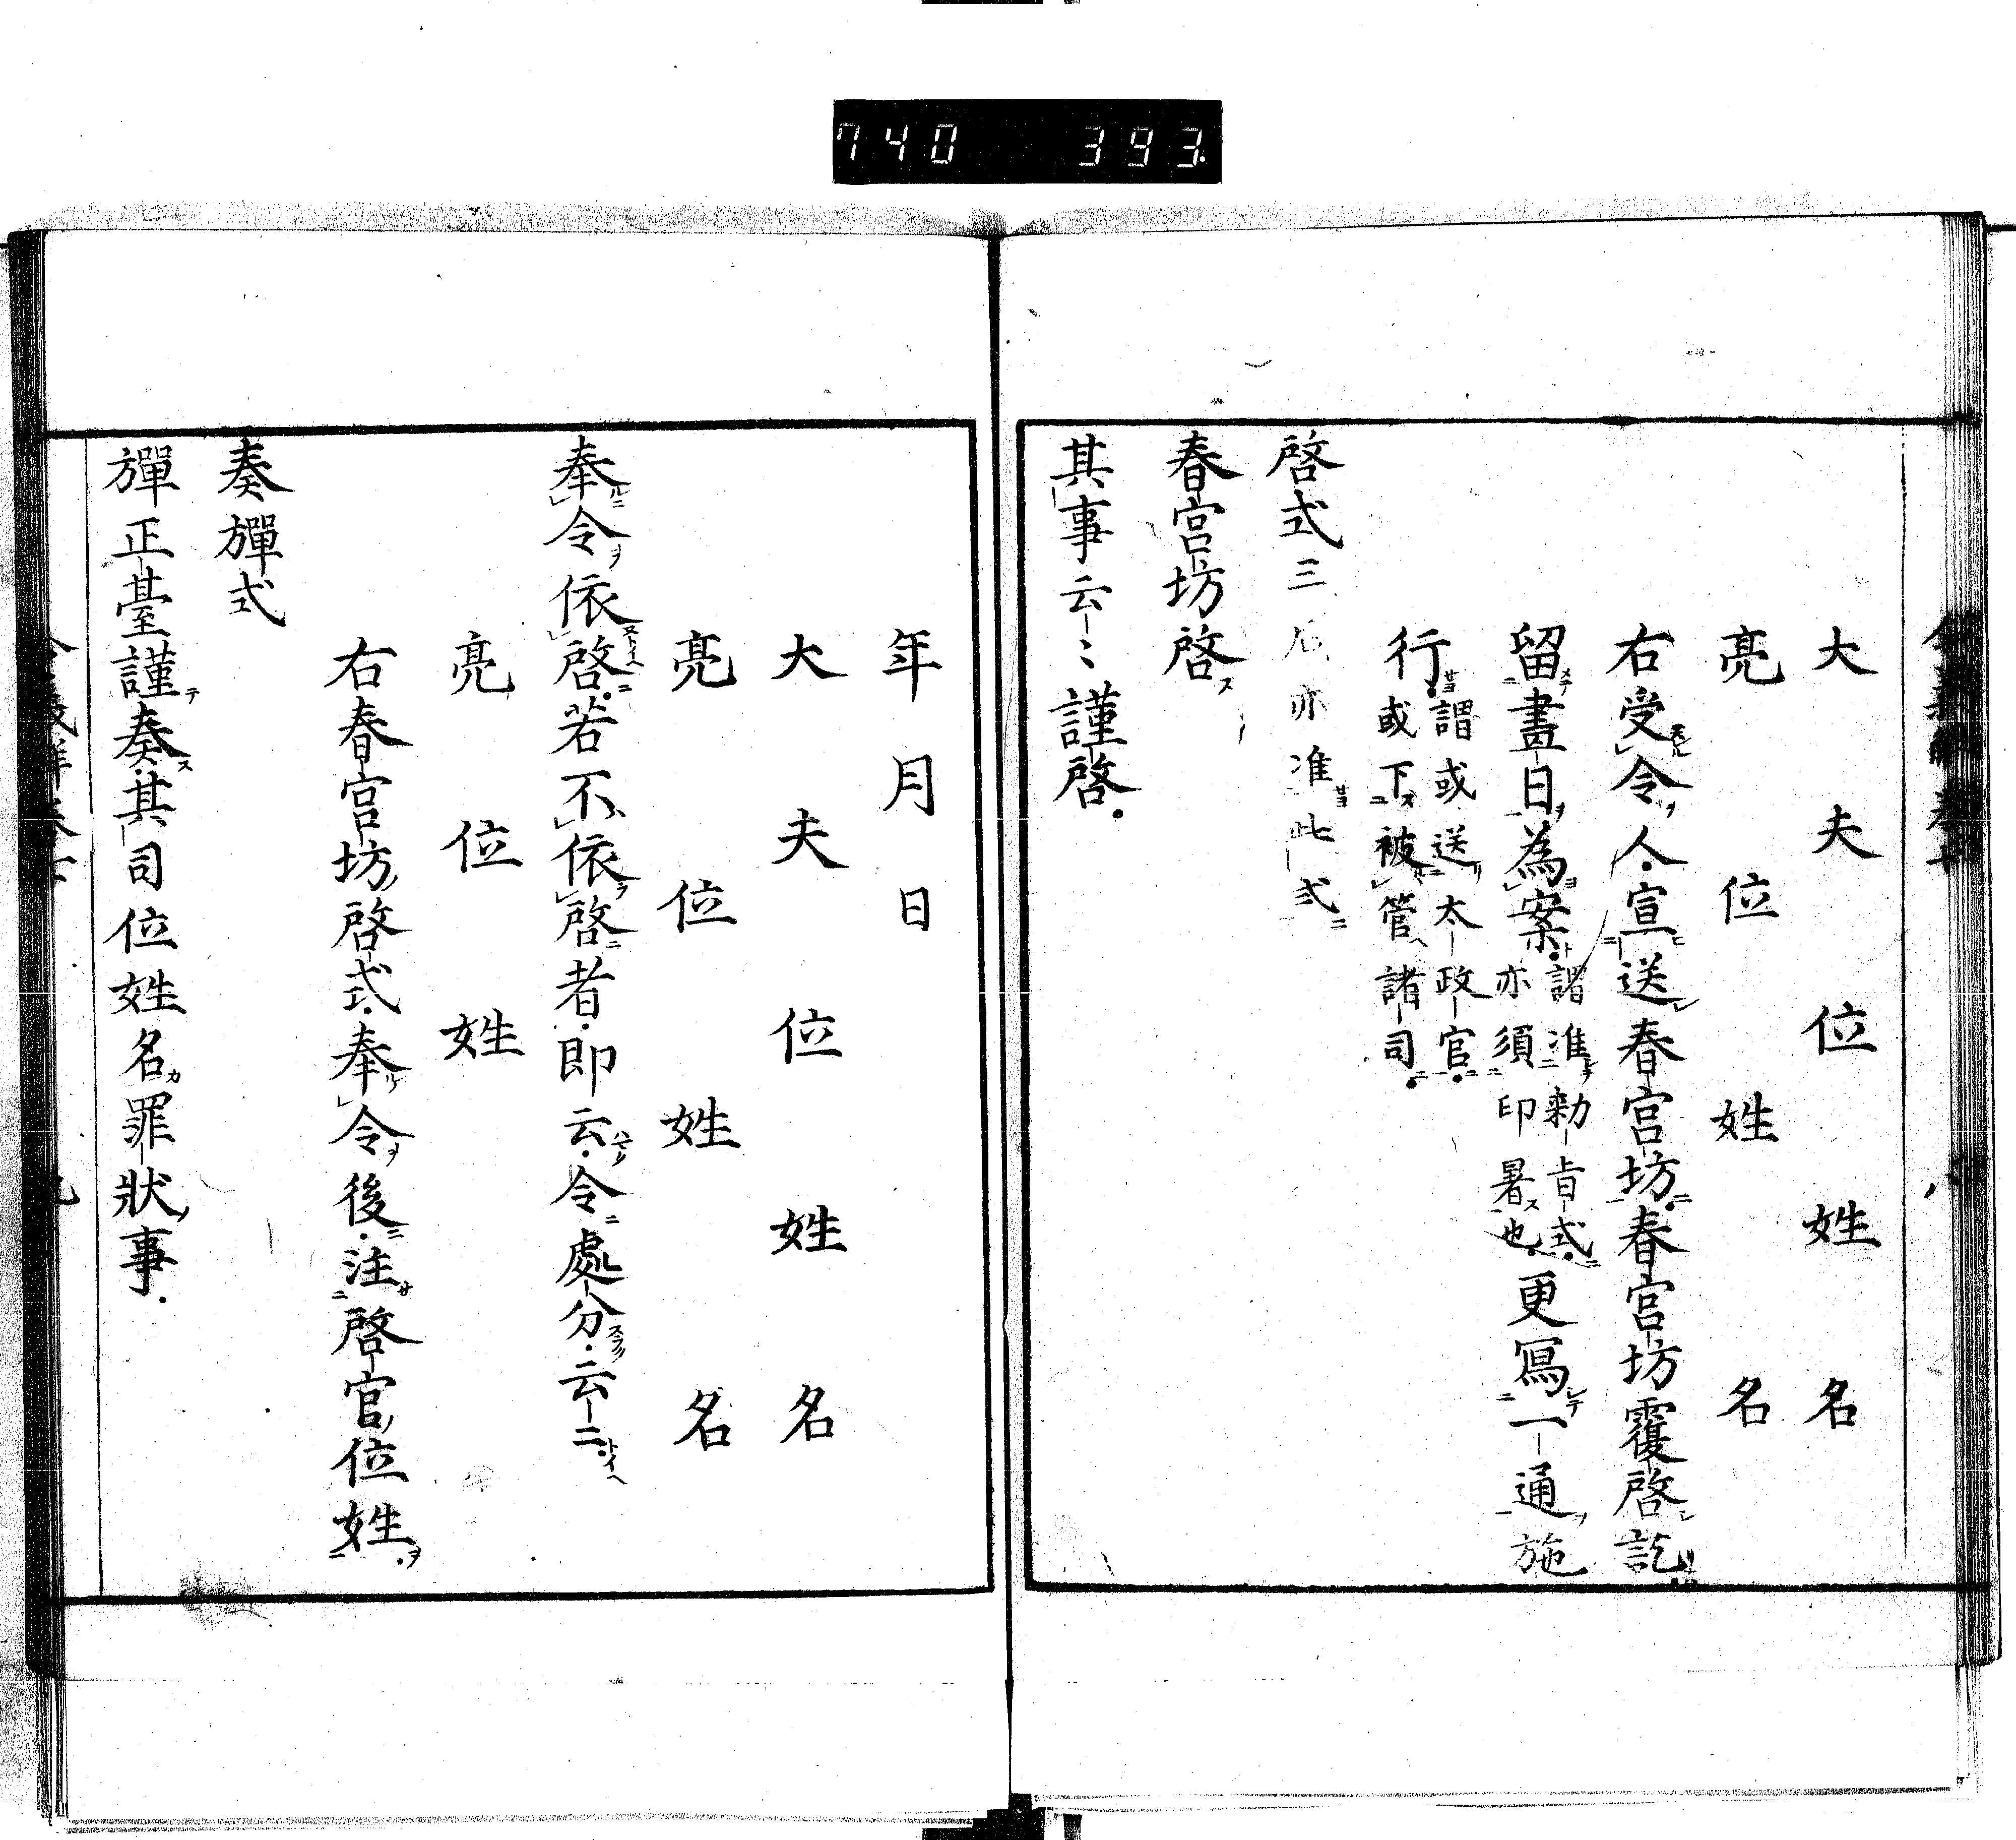 740 393
大夫位姓名
亮位姓名
右受令人宣送春宮坊春宮坊覆啓訖
留畫日為案謂准勅旨式
亦須印署也更寫一通施
行謂或送太政官
或下被管諸司
啓式三后亦准此式
春宮坊啓
其事云〻謹啓
年月日
大夫位姓名
亮位姓名
奉令依啓若不依啓者即云令處分云〻
亮位姓
右春宮坊啓式奉令後注啓官位姓
奏彈式
彈正臺謹奏其司位姓名罪狀事